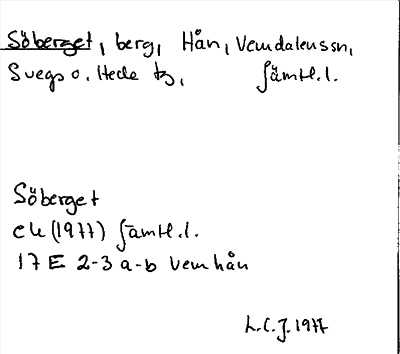 Söberget, berg, Hån, Vemdalens sn,
Svegs o. Hede tg, Jämtl. l.
Söberget
ek (1977) Jämtl. l.
17 E 2-3 a-b Vemhån
L.C.J. 1977